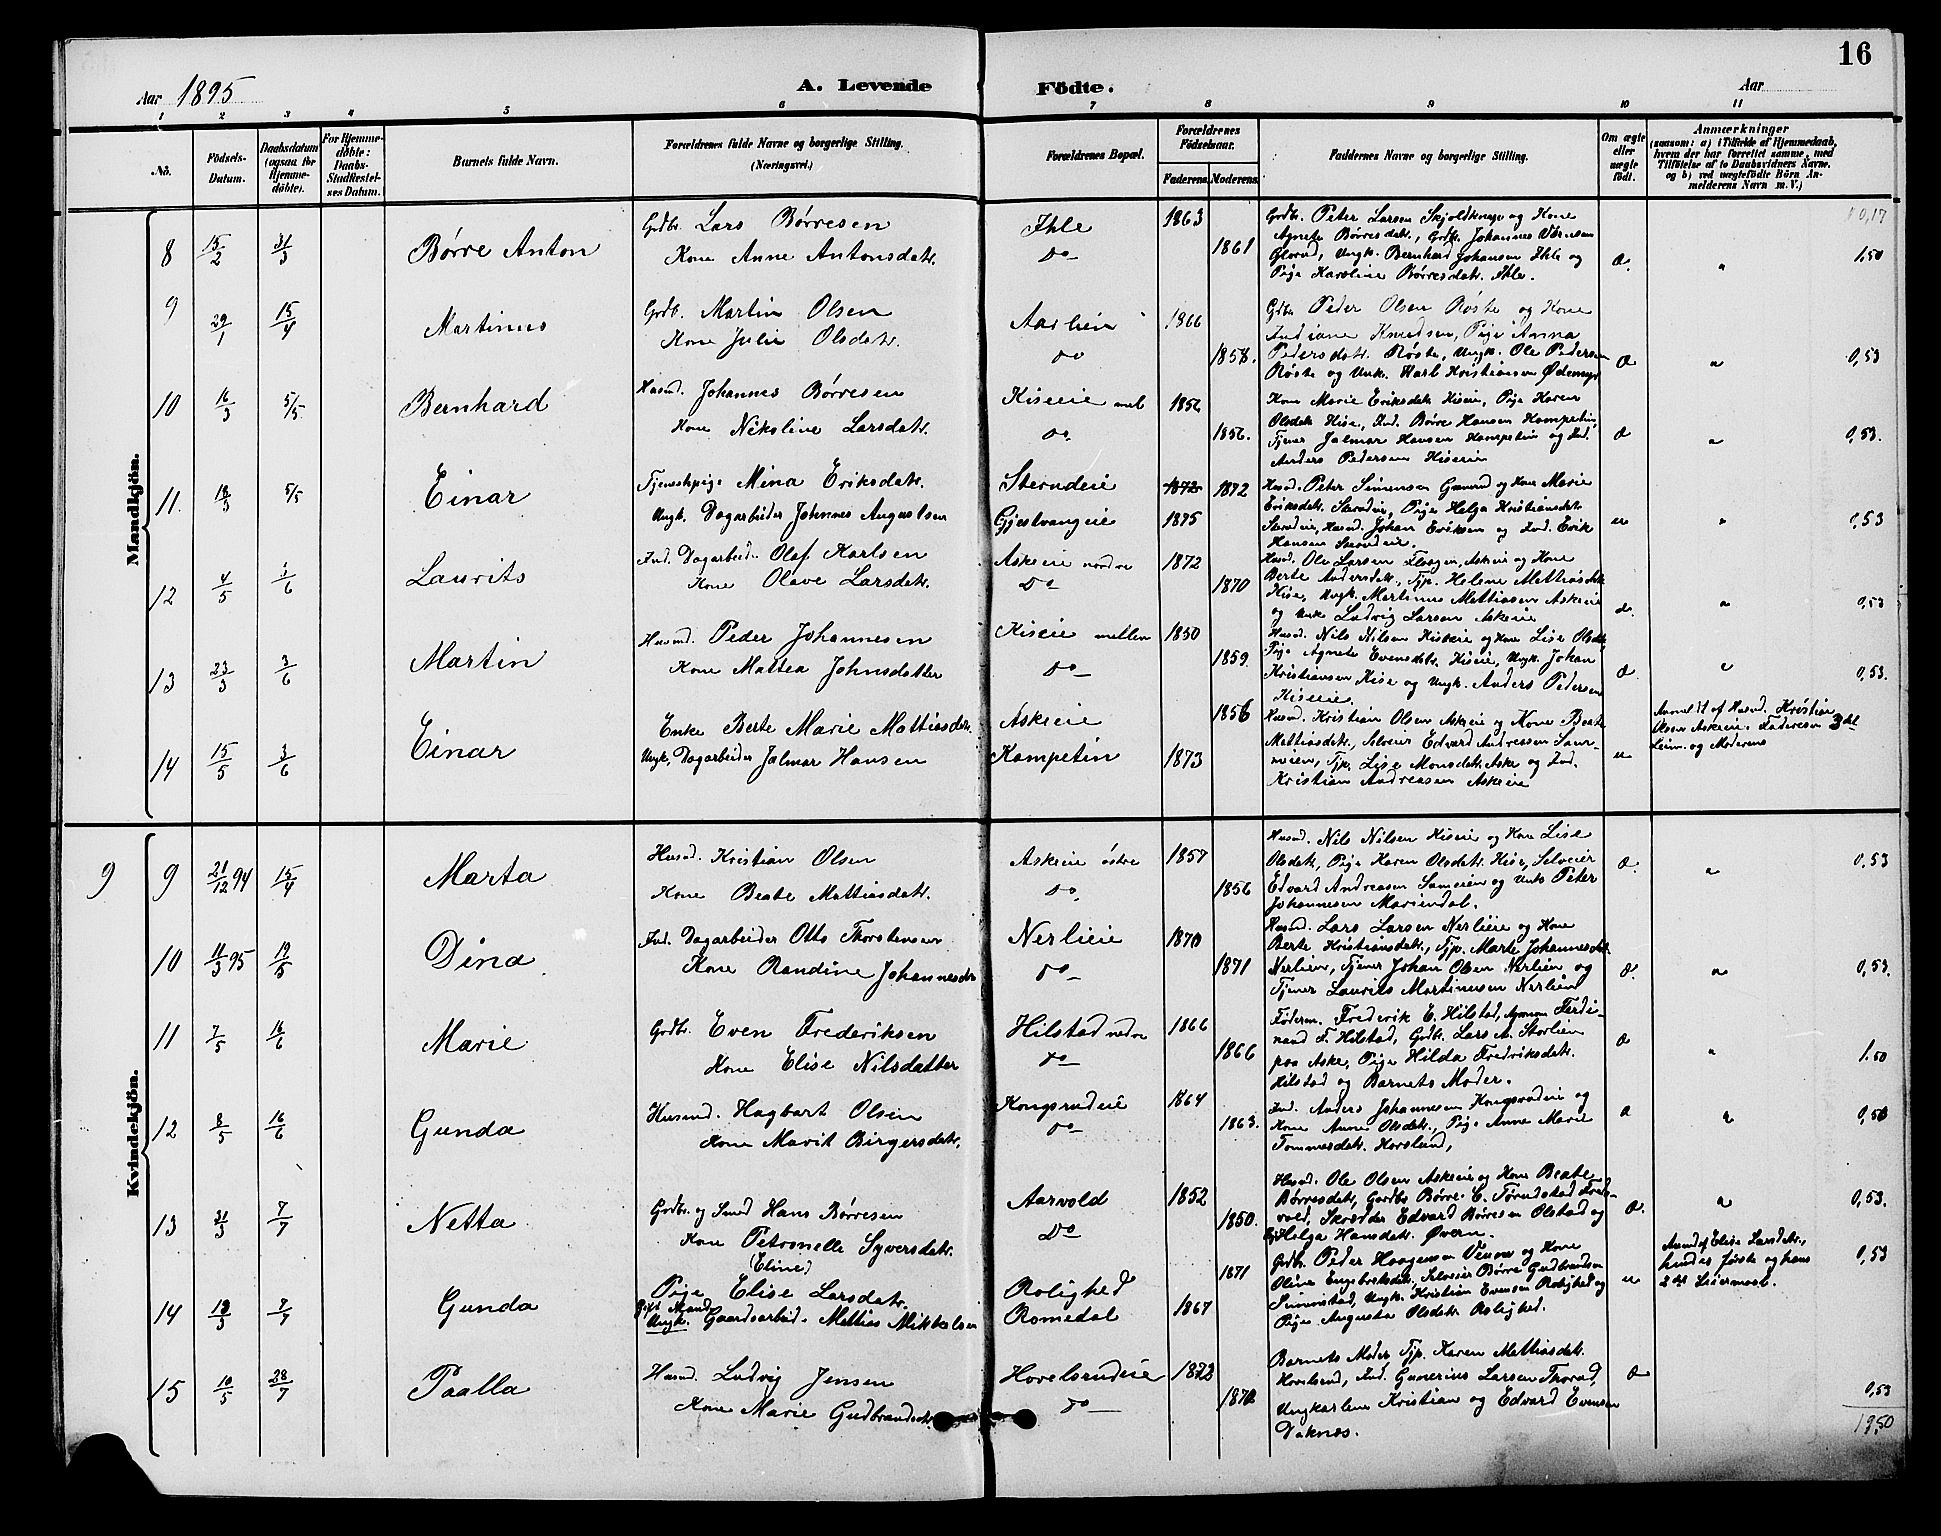 16
Aar 1895
A. Levende Födte.
Aar
1 2 3 4 5 6 7 8 9 10 11
No.
Födsels-Datum.
Daabsdatum (ogsaa for Hjemme-döbte).
For Hjemme-döbte: Daabs-Stadfæstel-ses Datum.
Barnets fulde Navn.
Forældrenes fulde Navne og borgerlige Stilling. (Næringsvei.)
Forældrenes Bopæl.
Forældrenes Födselsaar.
Faderens. Moderens.
Faddernes Navne og borgerlige Stilling.
Om ægte eller uægte födt.
Anmærkninger
(saasom: a) i Tilfælde af Hjemmedaab,
hvem der har forrettet samme, med
Tilföielse af to Daabsvidners Navne.
og b) ved uægtefödte Börn An-
melderens Navn m. V.)
Mandkjön.
8 15/2 31/3 Børre Anton
Grdb. Lars Børresen
Kone Anne Antonsdatr.
Ihle
Do
1863
1861
Grdbr. Peter Larsen Skjoldknap og Kone
Agnete Børresdatr., Grdb. Johannes
Glorud, Ungk. Bernhard Johansen Ihle og
Pige Karoline Børresdatr. Ihle.
1,50
9 29/1 15/4 Martinus
Grdb. Martin Olsen
Kone Julie Olsdatr.
Aarlien
Do
1866
1858.
Grdbr. Peder Olsen Røste og Kone
Andiane Knudsen, Pige Anna
Pedersdatr. Røste, Ungk. Ole Pedersen
Røste og Unk. Karl Kristiansen Ødemyr
0,53
10 16/3 5/5 Bernhard
Husmd. Johannes Børresen
Kone Nikoline Larsdatr.
Kiseie mel
Do
1856
1856.
Kone Marie Eriksdatr. Kiseie, Pige Karen
Olsdatr. Kise, Ind. Børre Hansen Kampetin,
Tjener Jalmar Hansen Kampetin og Ind.
Anders Pedersen Kiseie
0,53.
11. 18/3 5/5 Einar
Tjenestepige Mina Eriksdatr.
Ungk. Dagarbeider Johannes Augustsen
Sterudeie
Gjestvangeie
1872 1872
1875
Husmd. Peter Simensen Grønrud og Kone Marie
Eriksdatr. Pige Helga Kristiansdatr.
Husmd. Johan Eriksen og Ind. Erik
Hansen
0,53
12 4/5 3/6 Laurits
Ind. Dagarbeid. Olaf Karlsen
Kone Olave Larsdatr.
Askeie nordre
Do
1872
1870
Husmd. Ole Larsen Askeie og Kone
Berte Andersdatr., Tjp. Helene Mattiasdatr.
Kise, Ungk. Martinus Mattiasen Askeie
og Unk Ludvig Larsen Askeie
0,53
13 23/3 3/6 Martin
Husmd. Peder Johannesen
Kone Mattea Johnsdatter
Kiseie mellem
Do
1850
1859.
Husmd. Nils Nilsen Kiseie og Kone Lise Olsdatr.
Pige Agnete Evensdatr. Kiseie, Ungk. Johan
Kristiansen Kise og Ungk. Anders Pedersen
Kiseie.
0,53.
14 15/5 3/6 Einar
Enke Berte Marie Mattiasdatr.
Ungk. Dagarbeider Jalmar Hansen
Askeie
Kampetin
1856
1873
Husmd. Kristian Olsen Askeie og Kone Beate
Mattiasdatr., Selveier Edvard Andreasen
Tjp. Lise Monsdatr. Aske og Ind.
Kristian Andreasen Askeie
Anmeldt af Husmd. Kristian
Olsen Askeie. Faderens 3die
Leierm. og Moderens
Kvindekjön.
9 9 21/12 94 15/4 Marta
Husmd. Kristian Olsen
Kone Beate Mattiasdatr.
Askeie östre
Do
1857
1856
Husmd. Nils Nilsen Kiseie og Kone Lise
Olsdatr., Pige Karen Olsdatr. Kise, Selveier
Edvard Andreasen og Peter
Johannesen Mariendal.
0,53
10 11/3 95 19/5 Dina
Ind. Dagarbeider Otto Thorstensen
Kone Randine Johannesdtr
Nerlieie
Do
1870
1871
Husmd. Lars Larsen Nerlieie og Kone
Berte Kristiansdatr., Tjp. Marte Johannesdatr.
Nerlien, Tjener Johan Olsen Nerlien og
Tjener Laurits Martinusen Nerlien
0,53.
11 7/5 16/6 Marie
Grdbr. Even Frederiksen
Kone Elise Nilsdatter
Hilstad nedre
Do
1866
1866
Føderm. Frederik E. Hilstad, Agronom Ferdi-
nand F. Hilstad, Grdbr. Lars A. Storlien
paa Aske, Pige Hilda Fredriksdatr.
Hilstad og Barnets Moder.
1.50
12 8/5 16/6 Gunda
Husmd. Hagbart Olsen
Kone Marit Birgersdatr.
Kongsrudeie
Do
1864
1863.
Ind. Anders Johannesen Kongsrudeie og
Kone Anne Olsdatr., Pige Anne Marie
Tommesdatr. Horslund,
13 31/3 7/7 Netta
Grdbr. og Smed Hans Børresen
Kone Petronelle Syversdatr.
(Eline)
Aarvold
Do
1852
1850.
Husmd. Ole Olsen Askeie og Kone Beate
Børresdatr., Gardbr Børre E.
Skrædder Edvard Børresen Olstad og
Pige Helga Hansdatr. Øvern.
0,53.
14 19/3 7/7 Gunda
Pige Elise Larsdatr.
Gift Mand
Ungk. Gaardsarbeid. Mattias Mikkelsen
Rolighed
Romedal
1871
1867
Grdbr. Peder Haagensen og Kone
Oline Engebretsdatr., Selveier Børre Gudbrandsen
Ungk. Kristian Evensen Rolighed og
Pige Augusta Olsdatr. Rolighed.
Anmd af Elise Larsdatr.,
hendes første og hans
2det Leiermaal.
0,53
15 10/5 28/7 Paalla
Husmd. Ludvig Jensen
Kone Marie Gudbrandsdtr
Hovelsrudeie
Do
1872
Barnets Moder Tjp. Karen Mattiasdatr.
Hovelsrud, Ind. Gunerius Larsen
Ungkarlene Kristian og Edvard Evensen
Vaknes.
0,53
19,50